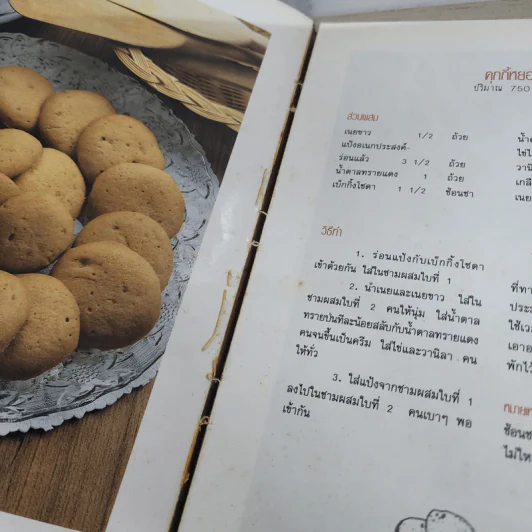 คุกกี้หยอ
ปริมาณ 750
ส่วนผสม
เนยขาว 1/2 ถ้วย
แป้งอเนกประสงค์-
ร่อนแล้ว 3 1/2 ถ้วย
น้ำตาลทรายแดง 1 ถ้วย
เบ็กกิ้งโซดา 1 1/2 ช้อนชา
น้ำต
ไข่ไ
วานิ
เกลื
เนย
วิธีทำ
1. ร่อนแป้งกับเบ็กกิ้งโซดา
เข้าด้วยกัน ใส่ในชามผสมใบที่ 1
2. นำเนยและเนยขาว ใส่ใน
ชามผสมใบที่ 2 คนให้นุ่ม ใส่น้ำตาล
ทรายป่นทีละน้อยสลับกับน้ำตาลทรายแดง
คนจนขึ้นเป็นครีม ใส่ไข่และวานิลา คน
ให้ทั่ว
3. ใส่แป้งจากชามผสมใบที่ 1
ลงไปในชามผสมใบที่ 2 คนเบาๆ พอ
เข้ากัน
ที่ทา
ประม
ใช้เว
เอาอ
พักไว้
หมายเห
ช้อนช
ไม่ให